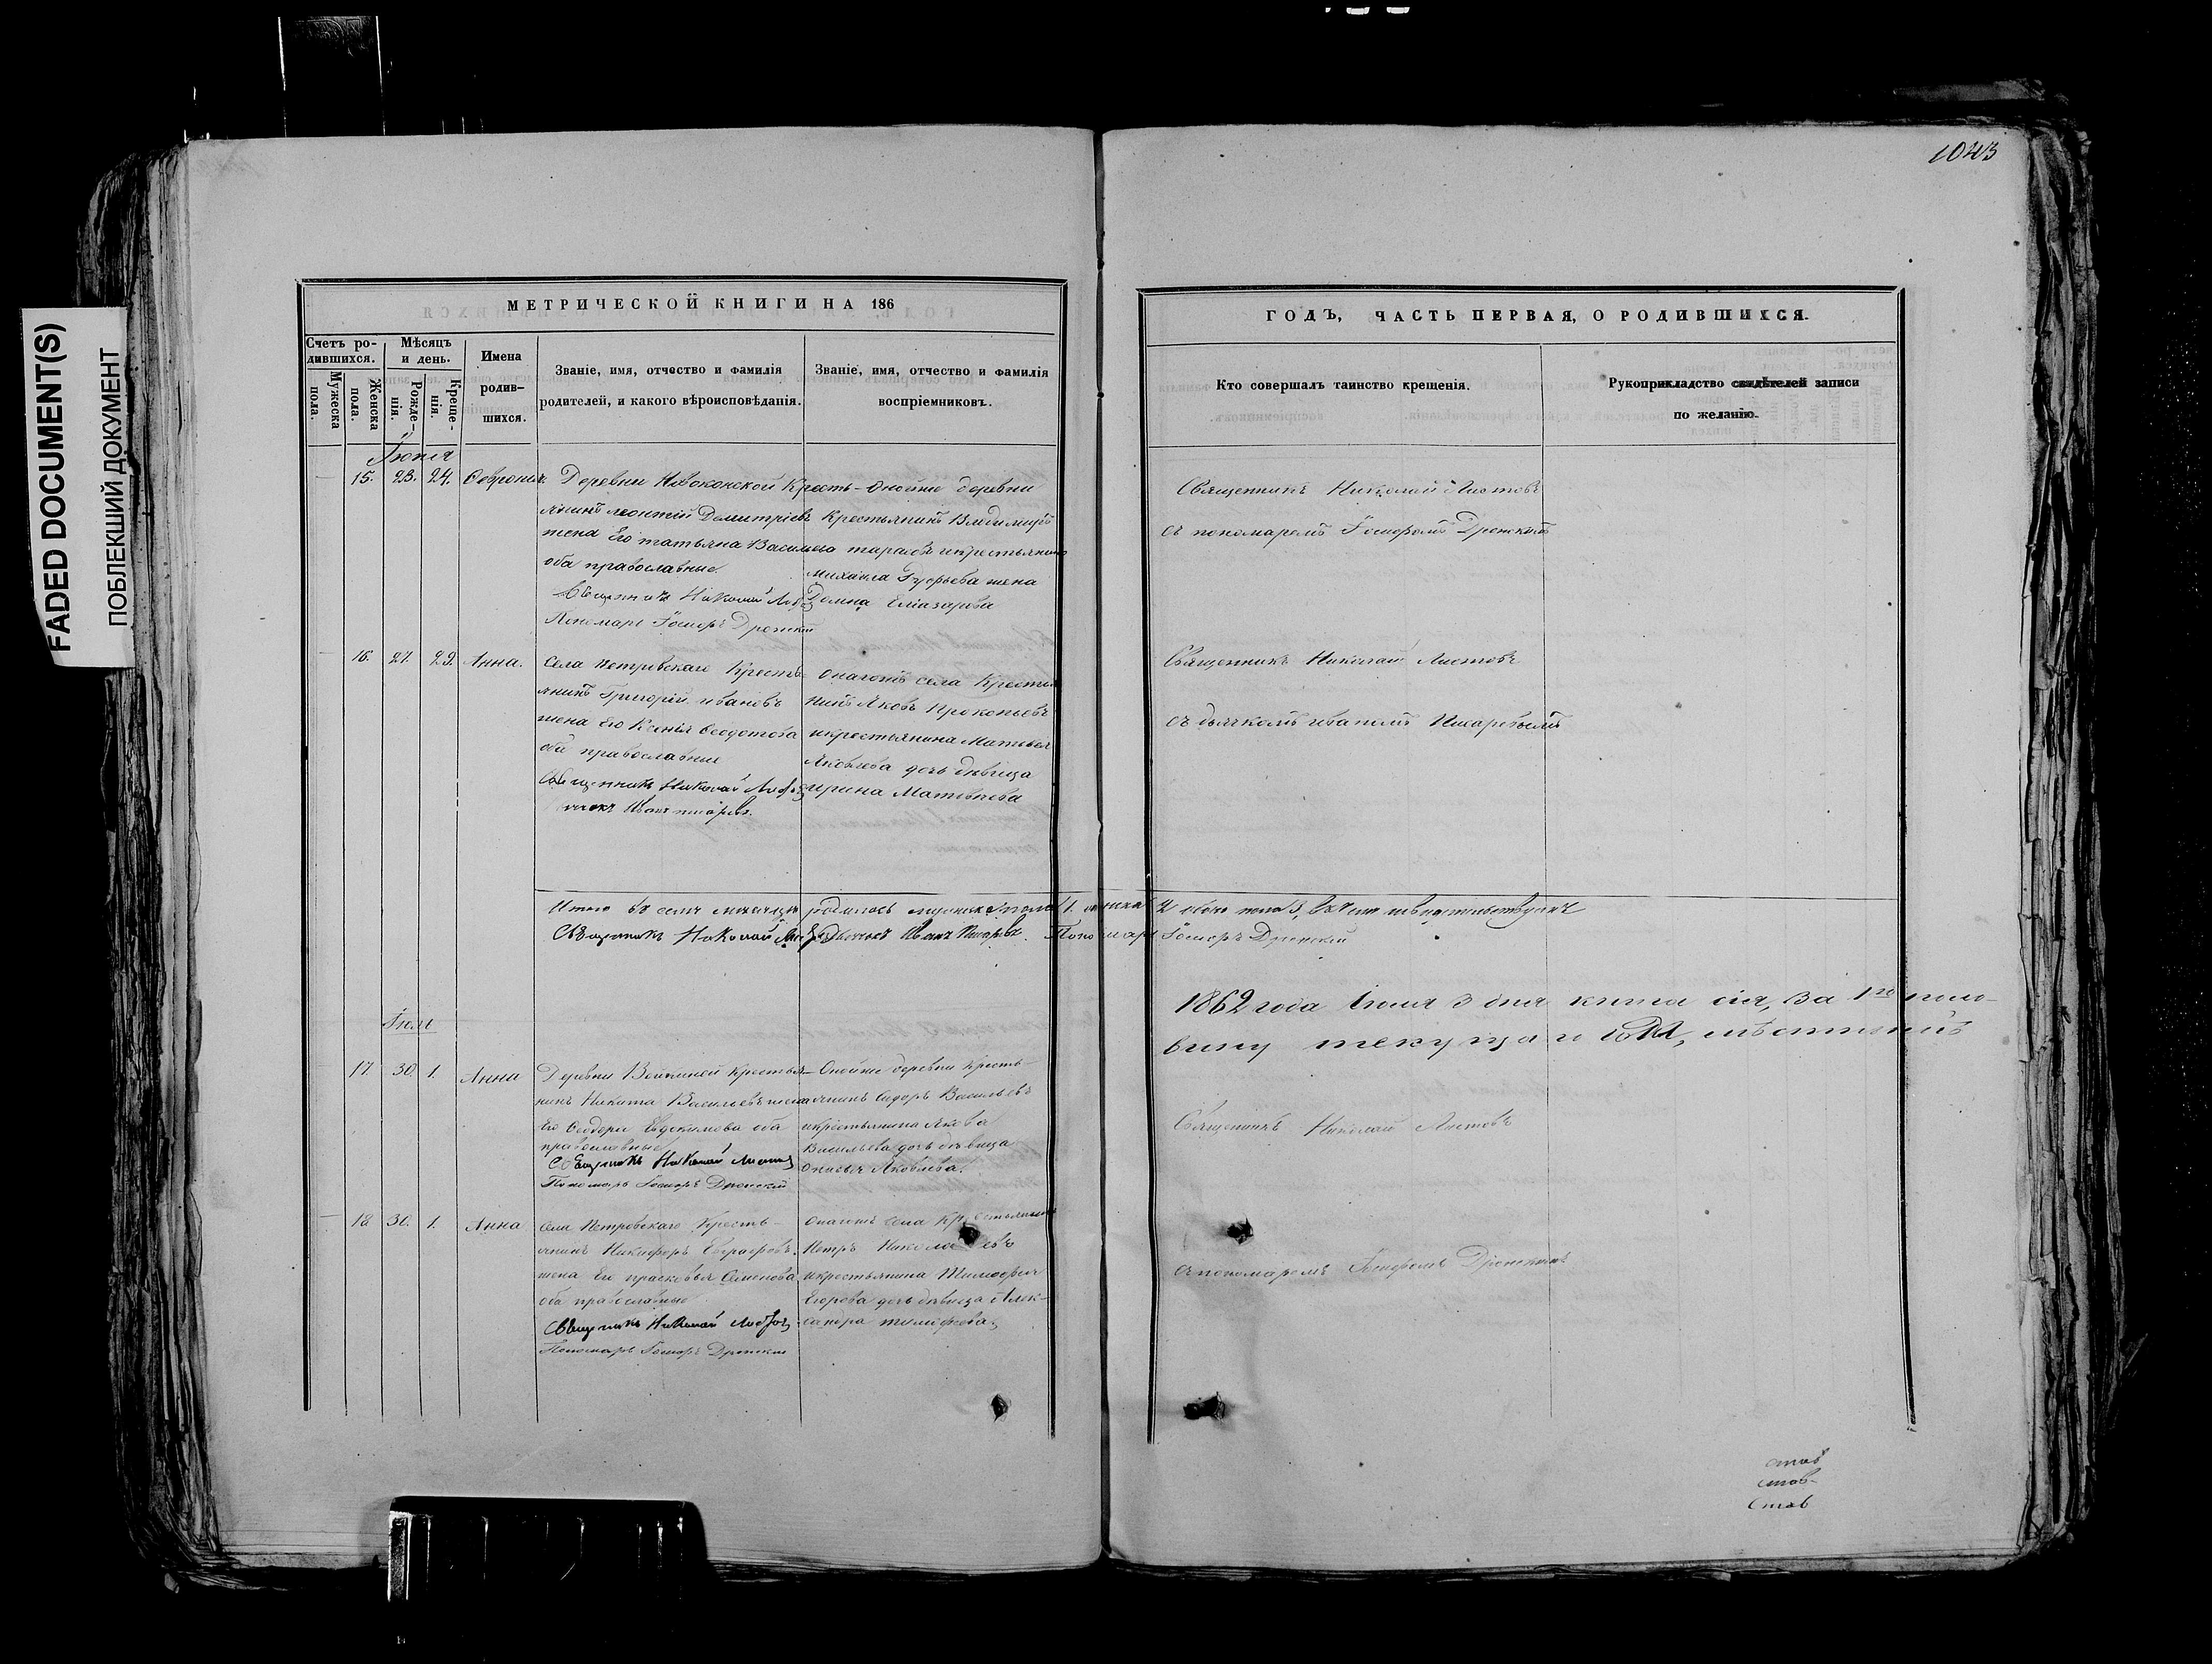 1043
FADED DOCUMENT(S)
ПОБЛЕКШИЙ ДОКУМЕНТ
МЕТРИЧЕСКОЙ КНИГИ НА 186
Счетъ ро-
дившихся.
Мужеска
пола.
Женска
пола.
Мѣсяцъ
и день.
Рожде-
нія.
Креще-
нія.
Имена
родив-
шихся.
Званіе, имя, отчество и фамилія
родителей, и какого вѣроисповѣданія.
Званіе, имя, отчество и фамилія
воспріемниковъ.
Іюня
15. 23. 24.
Деревни Крестъ-
янинъ Леонтій Димитріевъ
жена Его татьяна Васильева
оба православные.
Священникъ Николай
Пономарь Іосифъ Дронскій
Онойже деревни
Крестьянинъ Владимиръ
тарасовъ икрестьянина
михаила жена
Домна Еліазарова
16. 27. 29. Анна.
Села Петровскаго Крестъ-
янинъ Григорій ивановъ
жена Его Ксенія Ѳеодотова
оба православные
Священникъ Николай
Иванъ писаревъ.
Онагожъ села Крестья
нинъ Яковъ Прокопьевъ
икрестьянина Матвея
Яковлева дочь дѣвица
ирина Матвѣева
Итого въ семъ месяцѣ родилось мужска пола 1. женска 2 обоего пола 3, въ чемъ и свидетельствуемъ
Священникъ Николай Дьячекъ Иванъ Писаревъ. Пономарь Іосифъ Дронскій
Іюль
17. 30. 1. Анна
Деревни Крестья-
нинъ Никита Васильевъ жена
Его Ѳеодора Евдокимова оба
православные
Священникъ Николай
Пономарь Іосифъ Дронскій
Онойже деревни Кресть-
янинъ Сидоръ Васильевъ
икрестьянина Якова
Васильева дочь дѣвица
Яковлева.
18 30. 1. Анна
Села Петровскаго Кресть-
янинъ Никифоръ Евграфовъ
жена Его прасковья Семенова
оба православные
Священникъ Николай
Пономарь Іосифъ Дронскій
Онагожъ села Крестьянинъ
Петръ Николаевъ
икрестьянина Тимофея
Егорова дочь дѣвица Алек-
сандра тимофеева
ГОДЪ, ЧАСТЬ ПЕРВАЯ, О РОДИВШИХСЯ.
Кто совершалъ таинство крещенія.
Рукоприкладство свидѣтелей записи
по желанію.
Священникъ Николай Листовъ
съ пономаремъ Іосифомъ Дронскимъ
Священникъ Николай Листовъ
съ дьячкомъ иваномъ Писаревымъ
1862 года Іюля 3 дня книга сія, за 1ю поло-
вину текущаго года,
Священникъ Николай Листовъ
съ пономаремъ Іосифомъ Дронскимъ